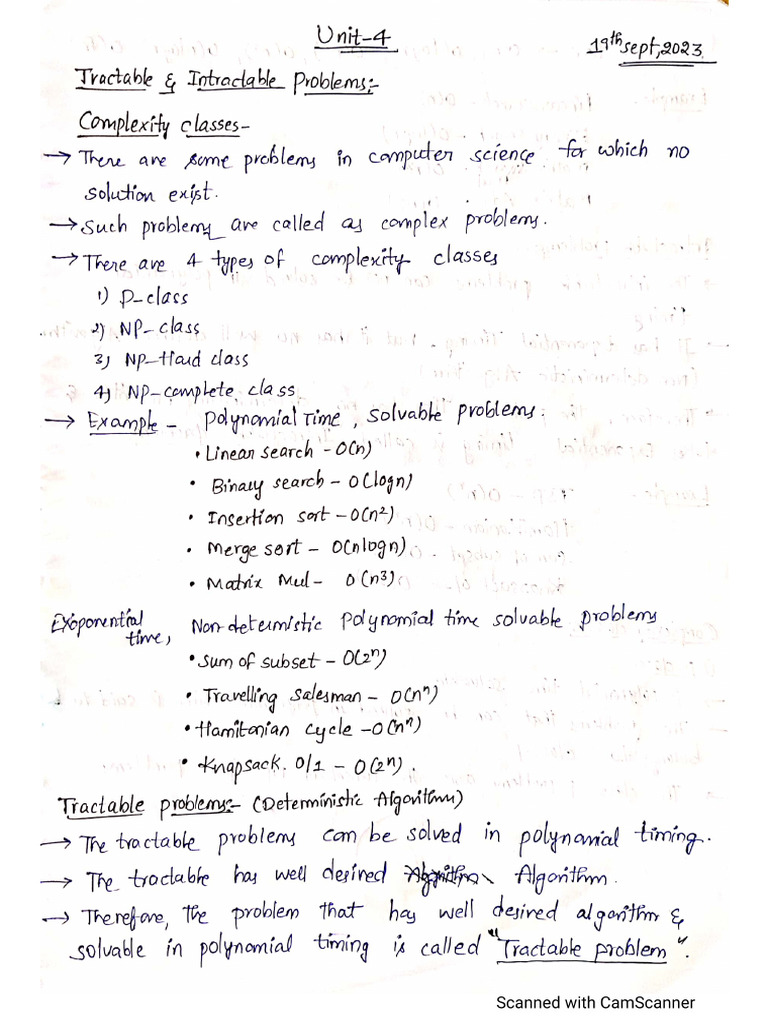 Unit-4
19th sept, 2023.
Tractable & Intractable Problems:-
Complexity classes-
→ There are some problems in computer science for which no
solution exist.
→ Such problems are called as complex problems.
→ There are 4 types of complexity classes
1) P-class
2) NP-class
3) NP-Hard class
4) NP-complete class
→ Example - Polynomial Time, Solvable problems:
• Linear search - O(n)
• Binary search - O(logn)
• Insertion sort - O(n²)
• Merge sort - O(nlogn)
• Matrix Mul - O(n³)
Exoponential time, Non-deterministic Polynomial time solvable problems
• Sum of subset - O(2ⁿ)
• Travelling Salesman - O(nⁿ)
• Hamitonian cycle - O(nⁿ)
• Knapsack. 0/1 - O(2ⁿ).
Tractable problems:- (Deterministic Algorithm)
→ The tractable problems can be solved in polynomial timing.
→ The tractable has well desired Algorithm.
→ Therefore, the problem that has well desired algorithm &
solvable in polynomial timing is called "Tractable problem".
Scanned with CamScanner